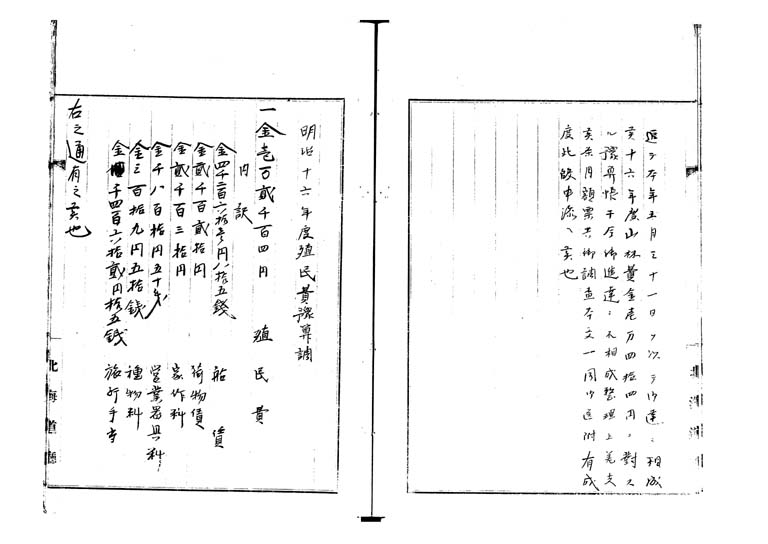 追テ本年五月三十一日ヲ以テ御達ニ相成
候十六年度山林費金壱万四拾四円ニ對スル
豫算帳于今御進達ニ不相成整理上差支
候条月額票共御調査本文一同御送附有成
度此段申添候也
明治十六年度殖民費豫算調
一金壱万貳千百四円 殖民費
内訳
金四千三百六拾壱円八拾五錢 船賃
金貳千百貳拾円 荷物賃
金貳千百三拾円 家作料
金千八百拾円五十錢 営業器具料
金三百拾九円五拾錢 種物料
金千四百六拾貳円拾五錢 旅行手当
右之通有之候也
北海道廳